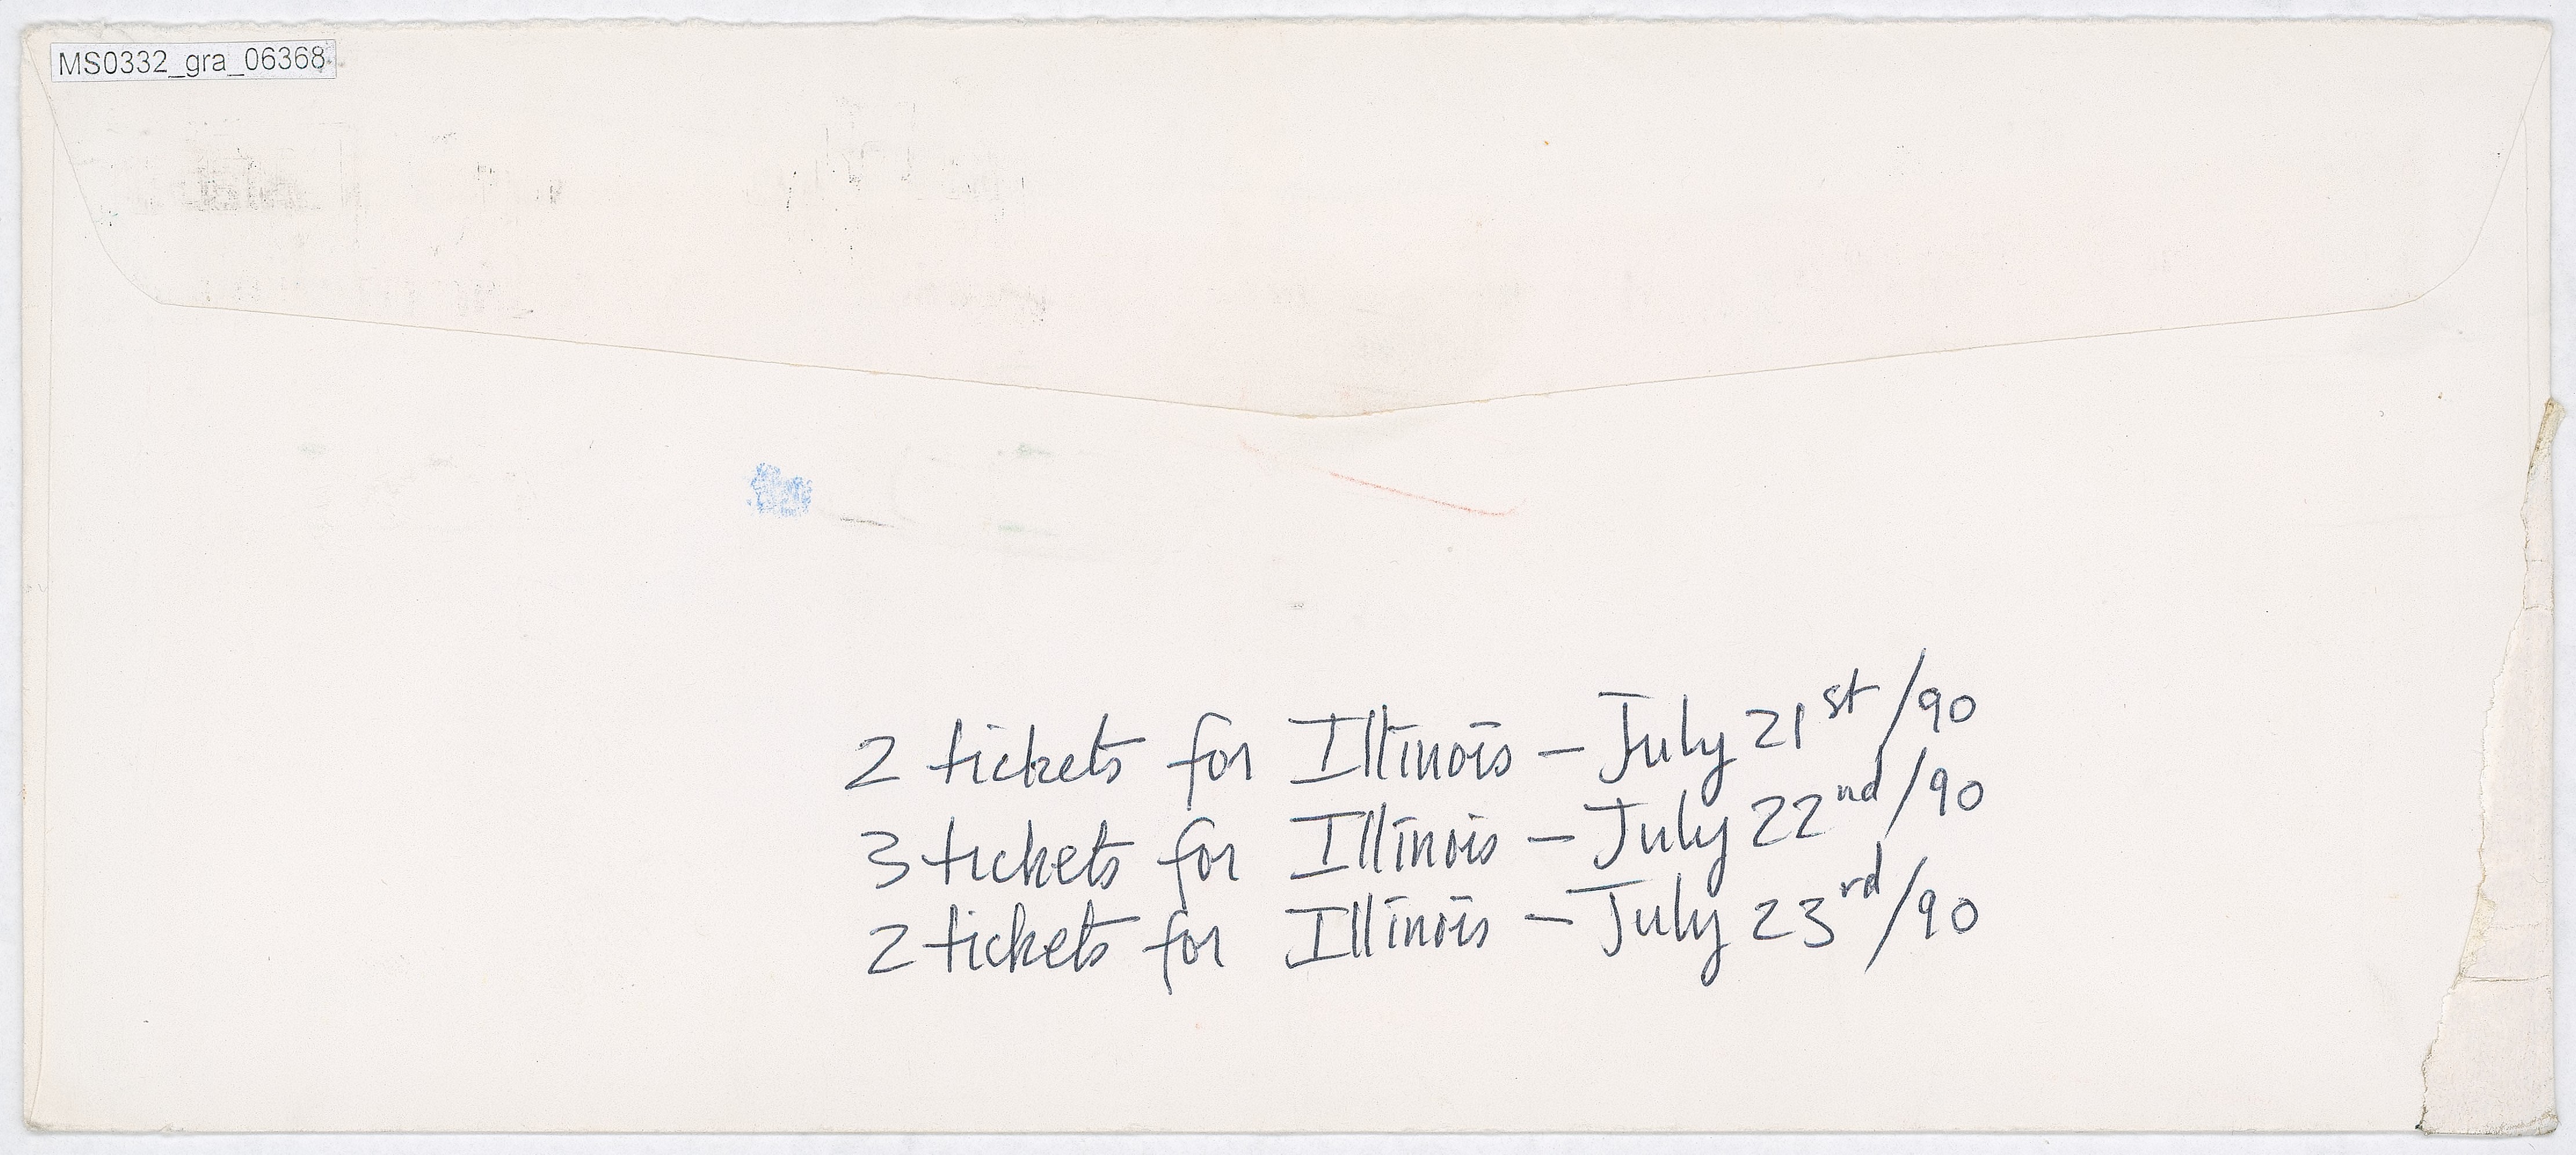 MS0332_gra_06368
2 tickets for Illinois - July 21st/90
3 tickets for Illinois - July 22nd/90
2 tickets for Illinois - July 23rd/90